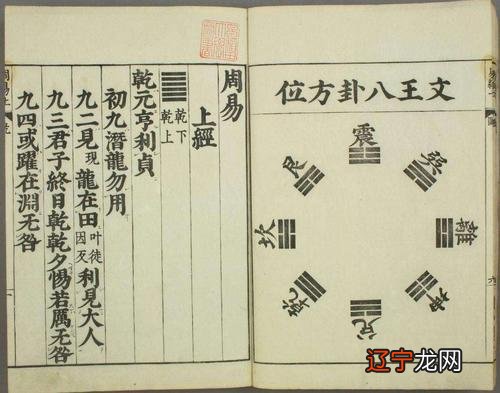 文王八卦方位
震
巽
離
坤
兌
乾
坎
艮
周易
上經
乾下
乾上
乾元亨利貞
初九潛龍勿用
九二見現龍在田叶徒因反利見大人
九三君子終日乾乾夕惕若厲无咎
九四或躍在淵无咎
周易上
乾
辽宁龙网